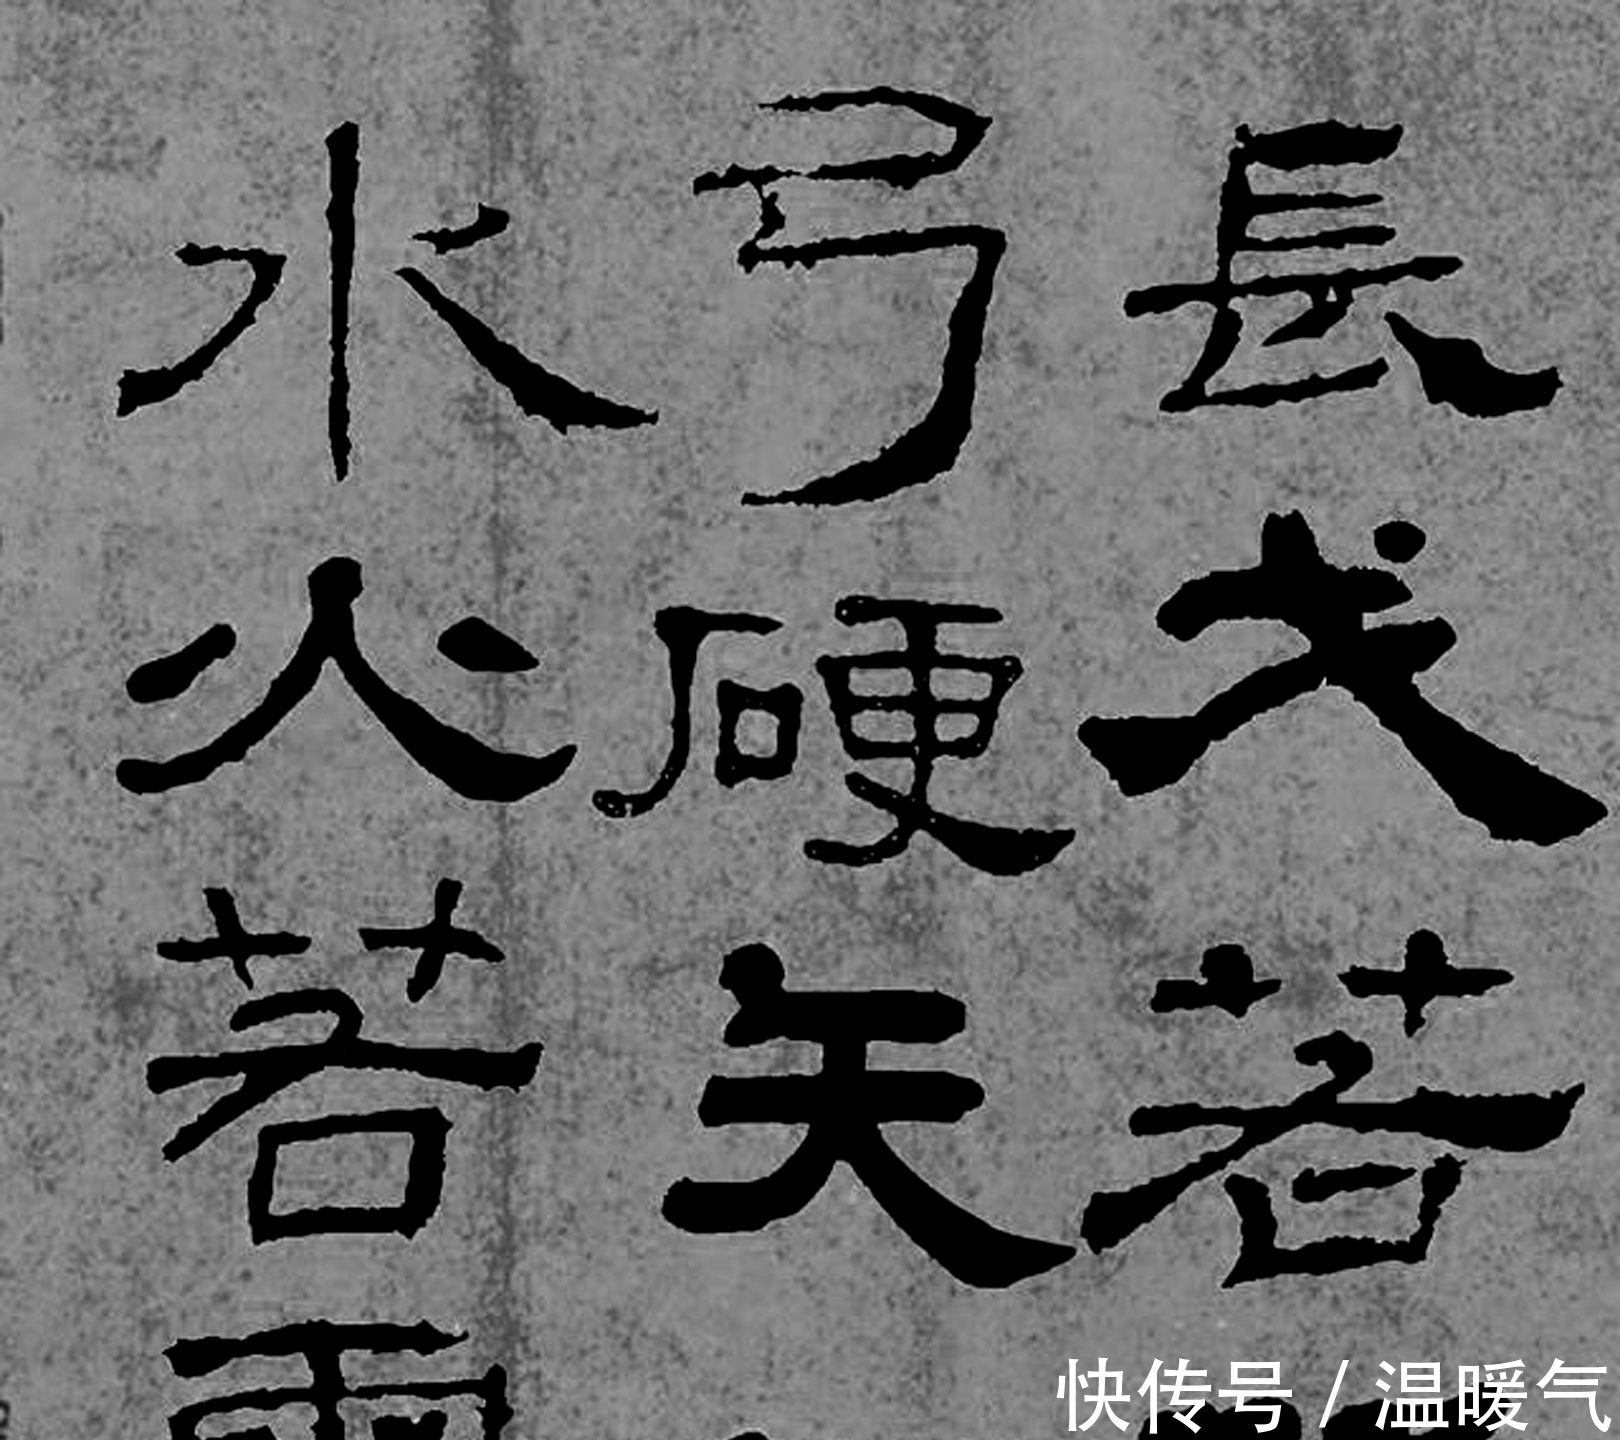 長戈若
弓硬矢
水火若雨
快传号 / 温暖气